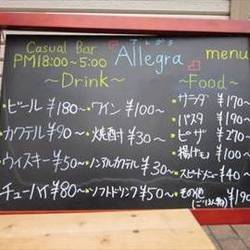 アレグラ
Casual Bar Allegra menu
PM18:00~5:00
~Drink~
・ビール ¥180~
・カクテル ¥90~
・ウィスキー ¥50~
・チューハイ ¥80~
・ワイン ¥100~
・焼酎 ¥30~
・ノンアルカクテル ¥30~
・ソフトドリンク ¥50~
~Food~
・サラダ ¥170
・パスタ ¥190
・ピザ ¥270
・揚げもの ¥100
・スピードメニュー ¥40~
・その他 (ごはん物) ¥190